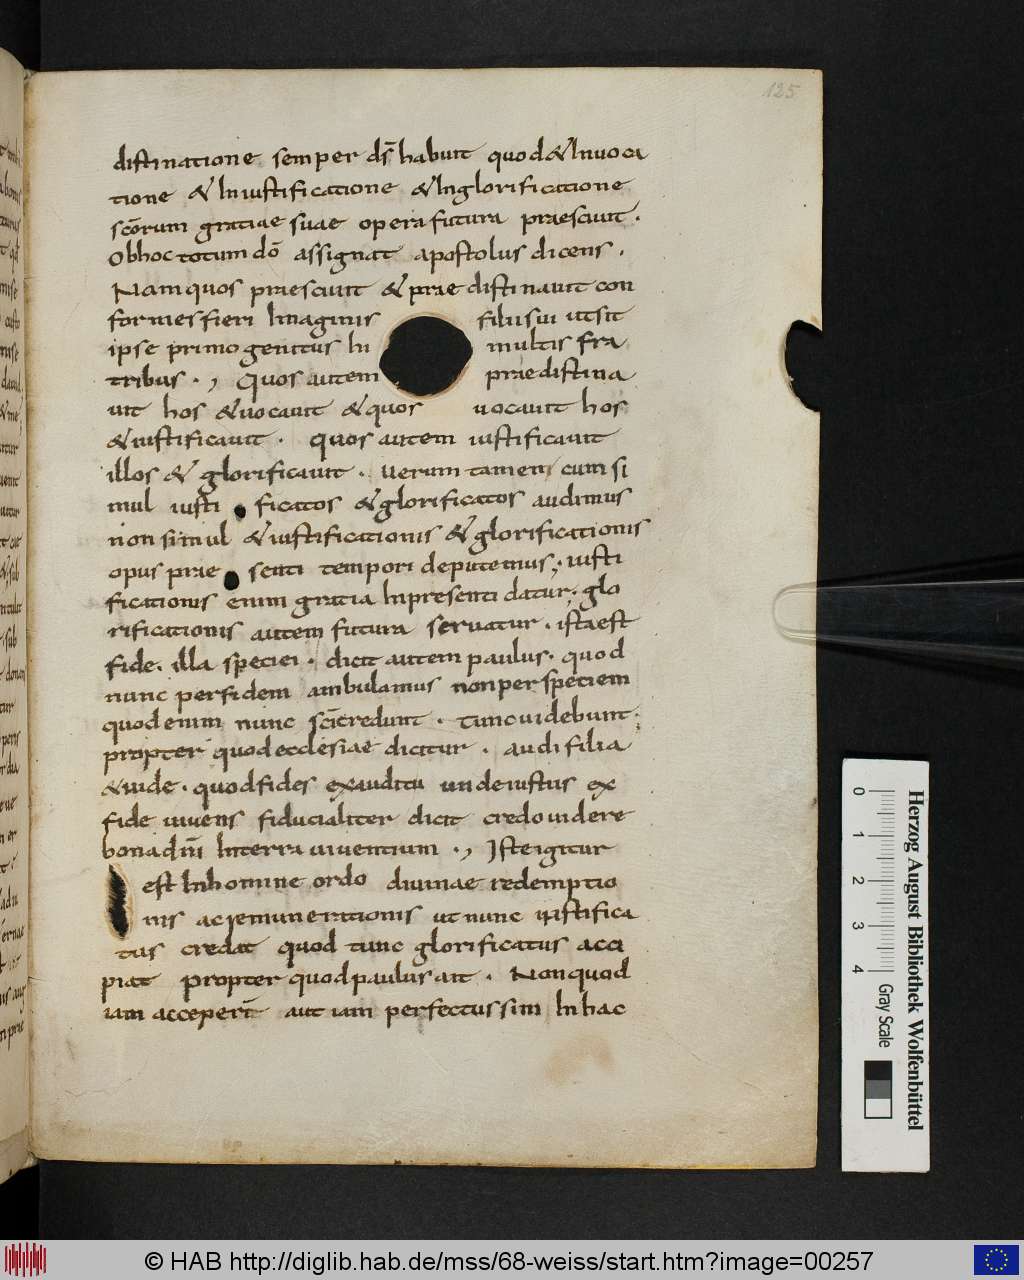 125
distinatione semper ds̄ habuit quod & Invoca
tione & In iustificatione & In glorificatione
scōrum gratiae suae opera futura praesciuit.
Ob hoc totum dō assignat apostolus dicens.
Nam quos praesciuit & praedistinauit con
formes fieri Imaginis filii sui ut sit
ipse primogenitus In multis fra
tribus., Quos autem praedistina
uit hos & uocauit & quos uocauit hos
& iustificauit. quos autem iustificauit
illos & glorificauit. uerum tamen cum si
mul iustificatos & glorificatos audimus
non simul & iustificationis & glorificationis
opus praesenti tempori deputemus; iusti
ficationis enim gratia In presenti datur; glo
rificationis autem futura seruatur. ista est
fide. illa speciei. dicit autem paulus. quod
nunc per fidem ambulamus non per speciem
quod enim nunc scī credunt. tunc uidebunt.
propter quod ecclesiae dicitur. audi filia
& uide. quod fides ex auditu unde iustus ex
fide uiuens fiducialiter dicit credo uidere
bona dn̄i In terra uiuentium., Iste igitur
est In homine ordo diuinae redemptio
nis ac remunerationis ut nunc iustifica
tus credat quod tunc glorificatus acci
piat propter quod paulus ait. Non quod
iam acceperī aut iam perfectus sim In hac
Herzog August Bibliothek Wolfenbüttel
0 1 2 3 4 Gray Scale
© HAB http://diglib.hab.de/mss/68-weiss/start.htm?image=00257